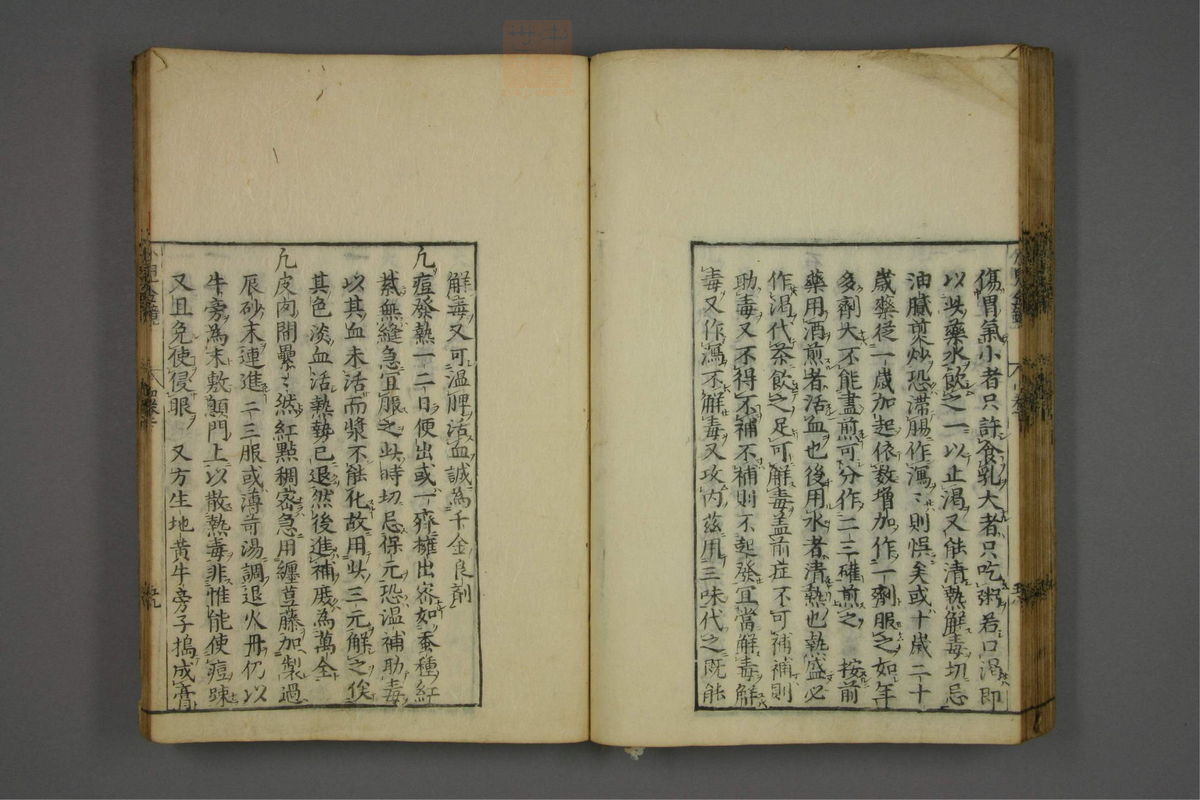 傷胃氣小者只許食乳大者只吃粥若口渴即
以此藥水飲之一以止渴又能清熱解毒切忌
油膩煎炒恐滯腸作瀉〻則悞矣或十歲二十
歲藥從一歲加起依数增加作一劑服之如年
多劑大不能盡煎可分作二三確煎之　按前
藥用酒煎者活血也後用水者清熱也熱盛必
作渴代茶飲之足可解毒盖前症不可補補則
助毒又不得不補不補則不起發宜當解毒解
毒又作瀉不解毒又攻內茲用三味代之既能
解毒又可温脾活血誠為千金良剤
凡痘發熱一二日便出或一齊擁出密如蚕種紅
紫無縫急宜服之此時切忌保元恐温補助毒
以其血未活而漿不能化故用此三元解之俟
其色淡血活熱勢已退然後進補庶為萬全
凡皮肉間疊〻然紅點稠密急用纏荳藤加製過
辰砂末連進二三服或薄荷湯調退火丹仍以
牛旁為末敷顖門上以散熱毒非惟能使痘踈
又且免使侵眼　又方生地黄牛旁子搗成膏